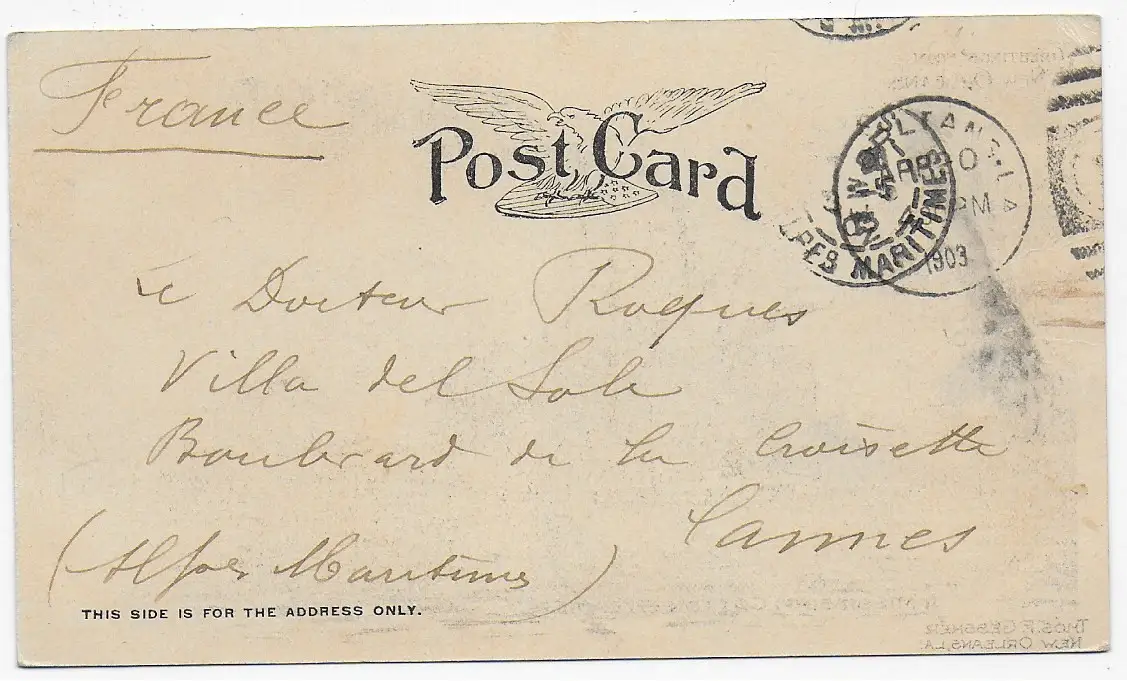 France
Post Card
NEW ORLEANS, LA
MAR 10
PM
1903
ALPES MARITIMES
Le Docteur Roques
Villa del Sole
Boulevard de la Croisette
Cannes
(Alpes Maritimes)
THIS SIDE IS FOR THE ADDRESS ONLY.
GREETINGS FROM
NEW ORLEANS
THOS. F. GESSNER
NEW ORLEANS, LA.